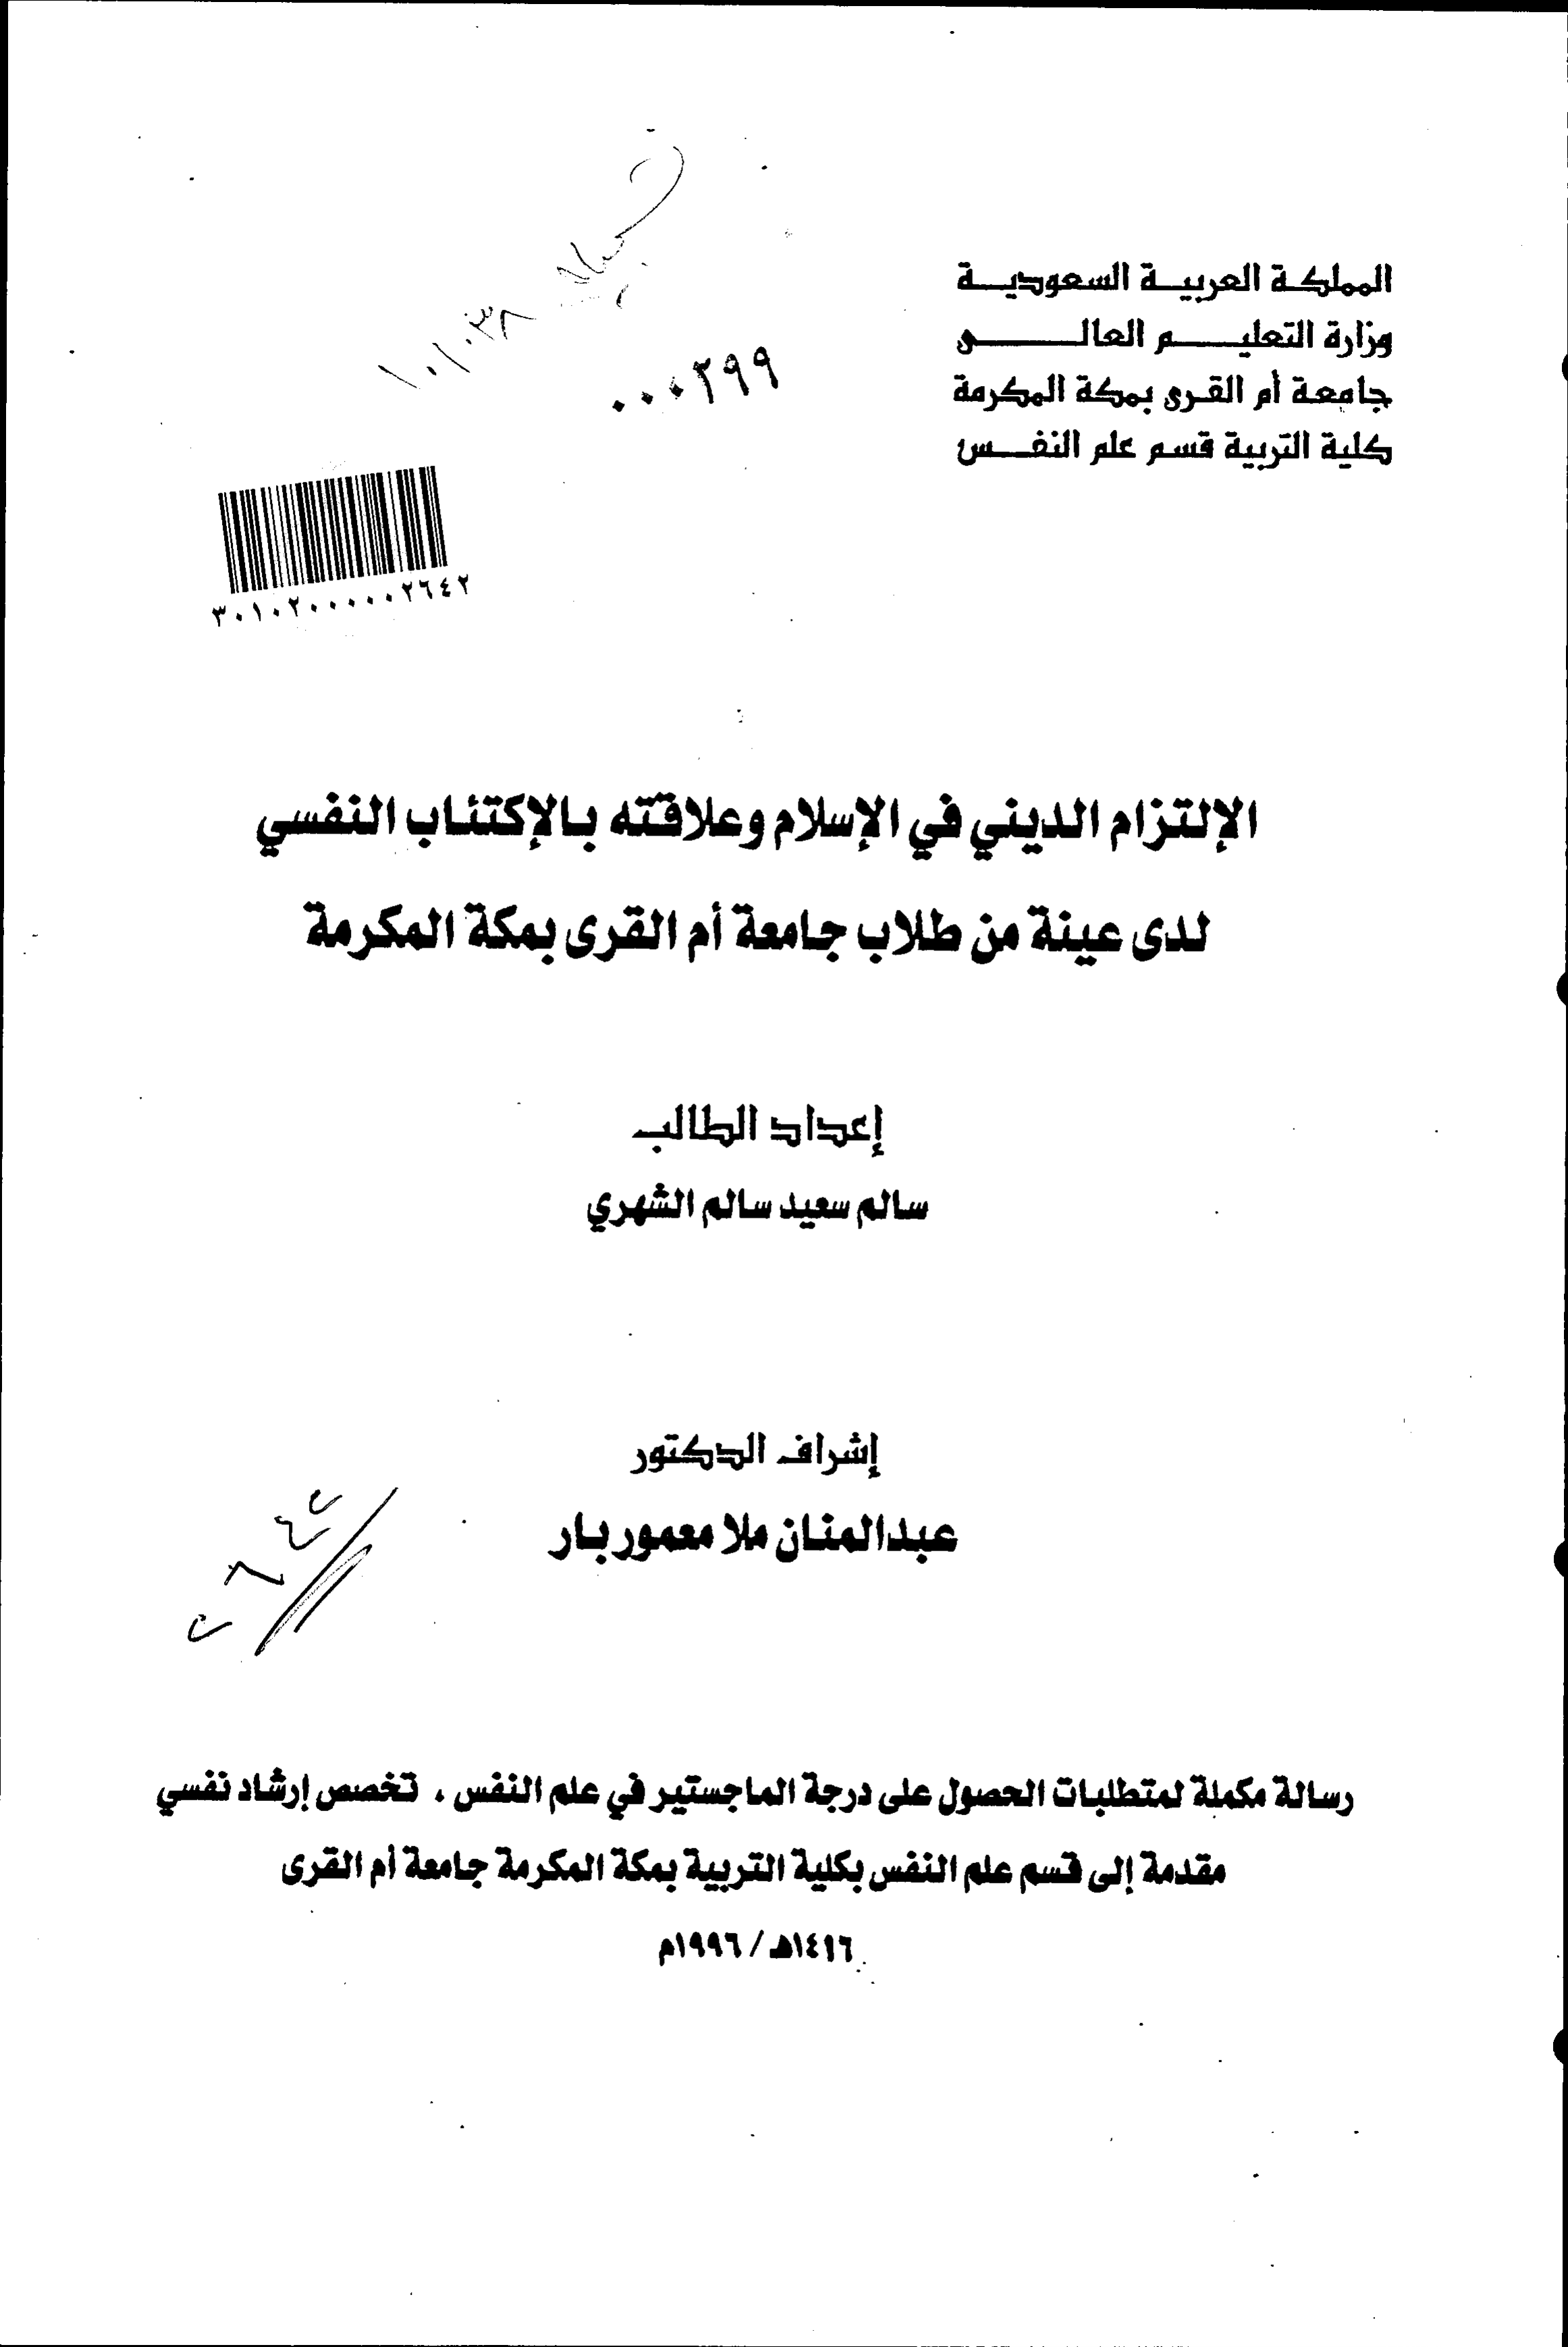 المملكة العربية السعودية
وزارة التعليم العالى
جامعة أم القرى بمكة المكرمة
كلية التربية قسم علم النفس
٠٠٠٢٩٩
٣٠١٠٢٠٠٠٠٠٢٦٤٢
الإلتزام الديني في الإسلام وعلاقته بالإكتئاب النفسي
لدى عينة من طلاب جامعة أم القرى بمكة المكرمة
إعداد الطالب
سالم سعيد سالم الشهري
إشراف الدكتور
عبدالمنان ملا معمور بار
٢٦٤٢
رسالة مكملة لمتطلبات الحصول على درجة الماجستير في علم النفس ، تخصص إرشاد نفسي
مقدمة إلى قسم علم النفس بكلية التربية بمكة المكرمة جامعة أم القرى
١٤١٦هـ / ١٩٩٦م